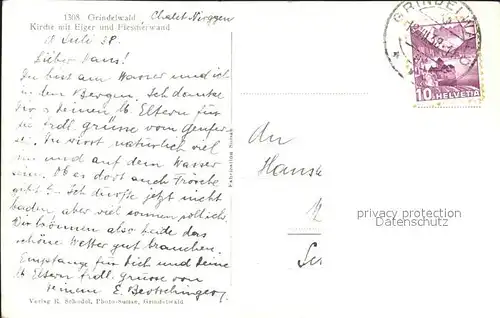 1308 Grindelwald
Kirche mit Eiger und Fiescherwand
Chalet
Juli 38.
Lieber Hans!
Du bist am Wasser und ich
in den Bergen. Ich danke
Dir & Deinen lb. Eltern für
die frdl. Grüsse vom Genfer
Du wirst natürlich viel
im und auf dem Wasser
sein. Ob es dort auch Frösche
gibt? Ich dürfte jetzt nicht
baden, aber viel sonnen sollich.
Wir können also beide das
schöne Wetter gut brauchen.
Empfange für Dich und Deine
lb Eltern frdl. Grüsse von
Deinem E.
Verlag R. Schudel, Photo-Suisse, Grindelwald
Fabrication Suisse
GRINDELWALD
10 HELVETIA
An
privacy protection